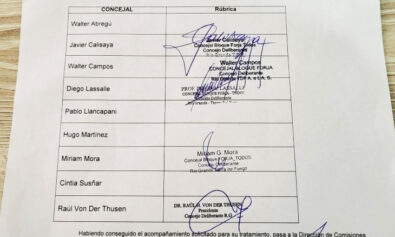 CONCEJAL Rúbrica
Walter Abregú
Javier Calisaya Javier Calisaya
Concejal Bloque Forja Todos
Concejo Deliberante
Walter Campos Walter Campos
CONCEJAL BLOQUE FORJA
Concejo Deliberante
Diego Lassalle
Concejo Deliberante
Pablo Llancapani
Hugo Martínez
Miriam Mora Miriam G. Mora
Concejal Bloque FORJA_TODOS
Concejo Deliberante
Cintia Susñar
Raúl Von Der Thusen DR. RAÚL H. VON DER THUSEN
Presidente
Concejo Deliberante R.G.
Habiendo conseguido el acompañamiento solicitado para su tratamiento, pasa a la Dirección de Comisiones